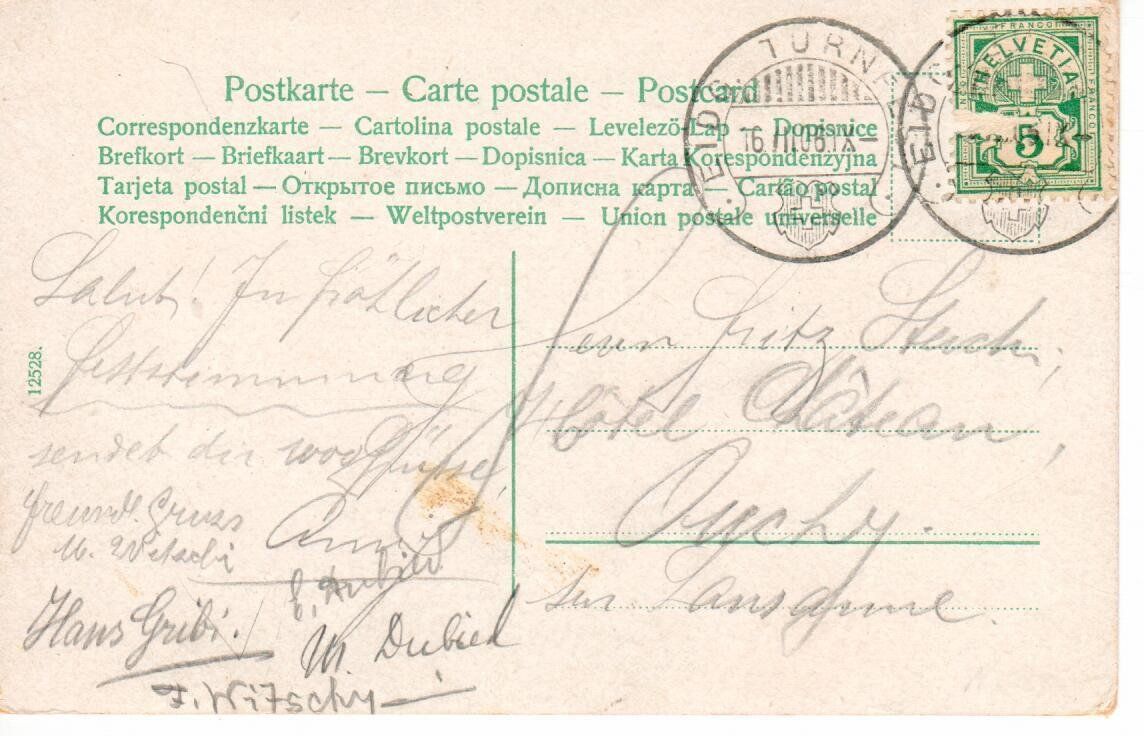 Postkarte — Carte postale — Postcard
Correspondenzkarte — Cartolina postale — Levelező-Lap — Dopisnice
Brefkort — Briefkaart — Brevkort — Dopisnica — Karta Korespondenzyjna
Tarjeta postal — Открытое письмо — Дописна карта — Cartão postal
Korespondenční listek — Weltpostverein — Union postale universelle
EIDG. TURN
16.VII.06.IX
FRANCO
HELVETIA
5
EIDG
12528.
Salut! In fröhlicher
Feststimmung
sendet dir
freundl. Gruss
Hans Gribi.
M. Dubied
F. Witschy
Herrn Fritz
Hôtel Château,
Ouchy.
sur Lausanne.